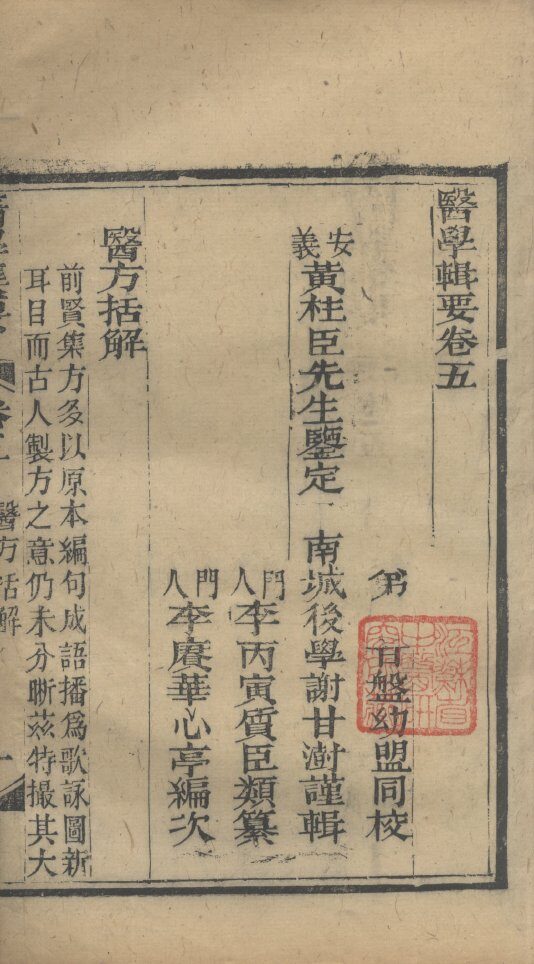 醫學輯要卷五
弟甘盤幼盟同校
安義黃柱臣先生鑒定　南城後學謝甘澍謹輯
門人李丙寅質臣類纂
門人李賡華心亭編次
醫方括解
前賢集方多以原本編句成語播爲歌詠圖新
耳目而古人製方之意仍未分晰茲特撮其大
醫方括解　一